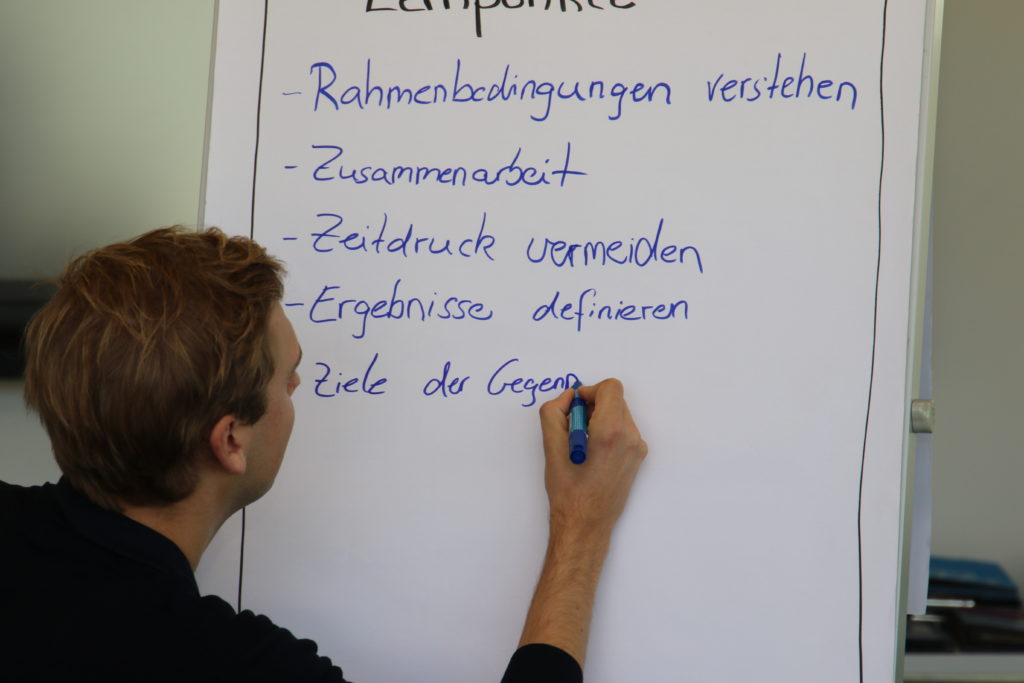 Lernpunkte
- Rahmenbedingungen verstehen
- Zusammenarbeit
- Zeitdruck vermeiden
- Ergebnisse definieren
Ziele der Gegen